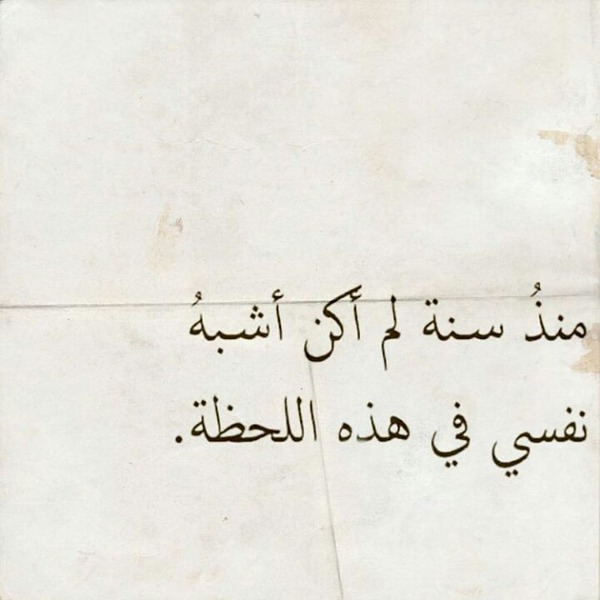 منذُ سنة لم أكن أشبهُ
نفسي في هذه اللحظة.